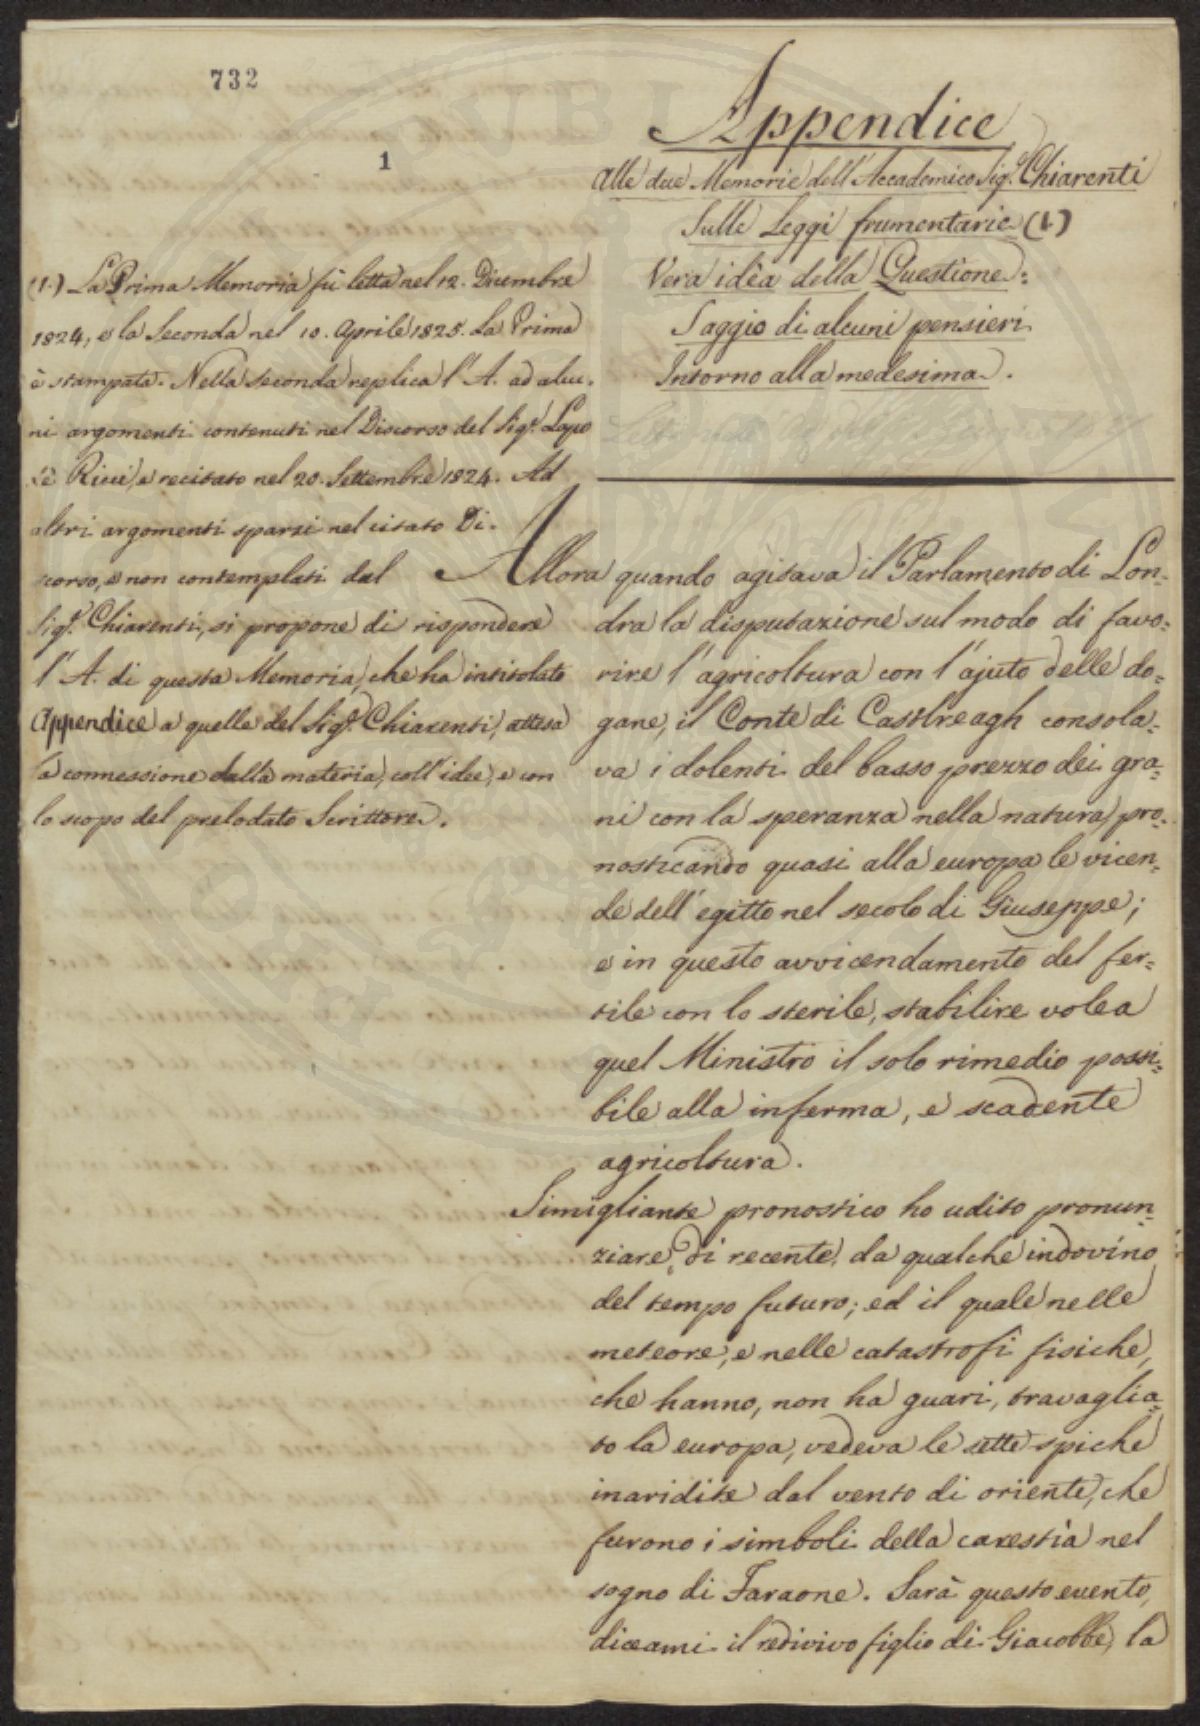 732
1
Appendice
alle due Memorie dell'Accademico Sig.e Chiarenti
Sulle Leggi frumentarie (1.)
Vera idèa della Questione:
Saggio di alcuni pensieri
Intorno alla medesima.
(1.) La Prima Memoria fù letta nel 12. Dicembre
1824, e la Seconda nel 10. Aprile 1825. La Prima
è stampata. Nella seconda replica l'A. ad alcu-
ni argomenti contenuti nel Discorso del Sig.e Lapo
de Ricci, e recitato nel 20. Settembre 1824. Ad
altri argomenti sparsi nel citato Di-
scorso, e non contemplati dal
Sig.e Chiarenti, si propone di rispondere
l'A. di questa Memoria, che ha intitolato
Appendice a quelle del Sig.e Chiarenti, attesa
la connessione dalla materia, coll'idee, e con
lo scopo del prelodato Scrittore.
Allora quando agitava il Parlamento di Lon-
dra la disputazione sul modo di favo-
rire l'agricoltura con l'ajuto delle do-
gane, il Conte di Castlreagh consola-
va i dolenti del basso prezzo dei gra-
ni con la speranza nella natura, pro-
nosticando quasi alla europa le vicen-
de dell'egitto nel secolo di Giuseppe;
e in questo avvicendamento del fer-
tile con lo sterile, stabilire volea
quel Ministro il solo rimedio possi-
bile alla inferma, e scadente
agricoltura.
Simigliante pronostico ho udito pronun-
ziare, di recente, da qualche indovino
del tempo futuro; ed il quale nelle
meteore, e nelle catastrofi fisiche,
che hanno, non ha guari, travaglia-
to la europa, vedeva le sette spiche
inaridite dal vento di oriente, che
furono i simboli della carestìa nel
sogno di Faraone. Sarà questo evento,
diceami il redivivo figlio di Giacobbe, la